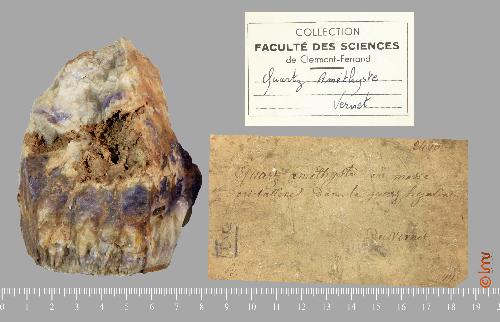 COLLECTION
FACULTÉ DES SCIENCES
de Clermont-Ferrand
Quartz Améthyste
Vernet
Quartz améthyste en masse
cristalline dans le quartz hyalin
Du Vernet
0 1 2 3 4 5 6 7 8 9 10 11 12 13 14 15 16 17 18 19